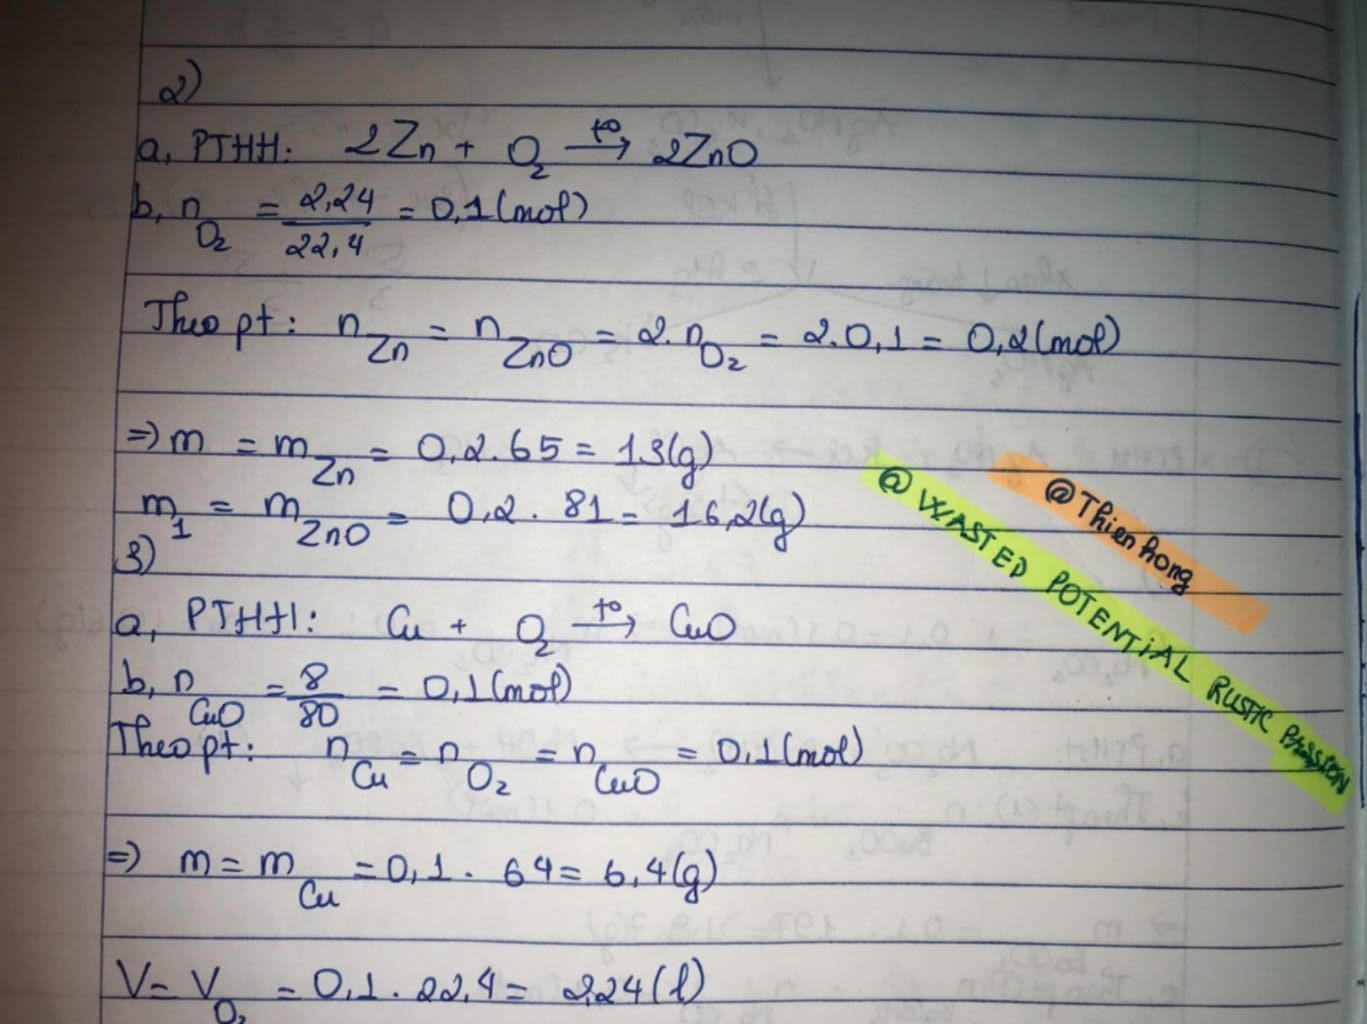 2)
a, PTHH: 2Zn + O₂ →(t°) 2ZnO
b, n_O₂ = 2,24/22,4 = 0,1 (mol)
Theo pt: n_Zn = n_ZnO = 2.n_O₂ = 2.0,1 = 0,2 (mol)
=> m = m_Zn = 0,2.65 = 13(g)
m₁ = m_ZnO = 0,2 . 81 = 16,2(g)
3)
a, PTHH: Cu + O₂ →(t°) CuO
b, n_CuO = 8/80 = 0,1 (mol)
Theo pt: n_Cu = n_O₂ = n_CuO = 0,1 (mol)
=> m = m_Cu = 0,1 . 64 = 6,4(g)
V = V_O₂ = 0,1 . 22,4 = 2,24 (l)
@Thienhong
@WASTED POTENTIAL RUSTIC PASSION